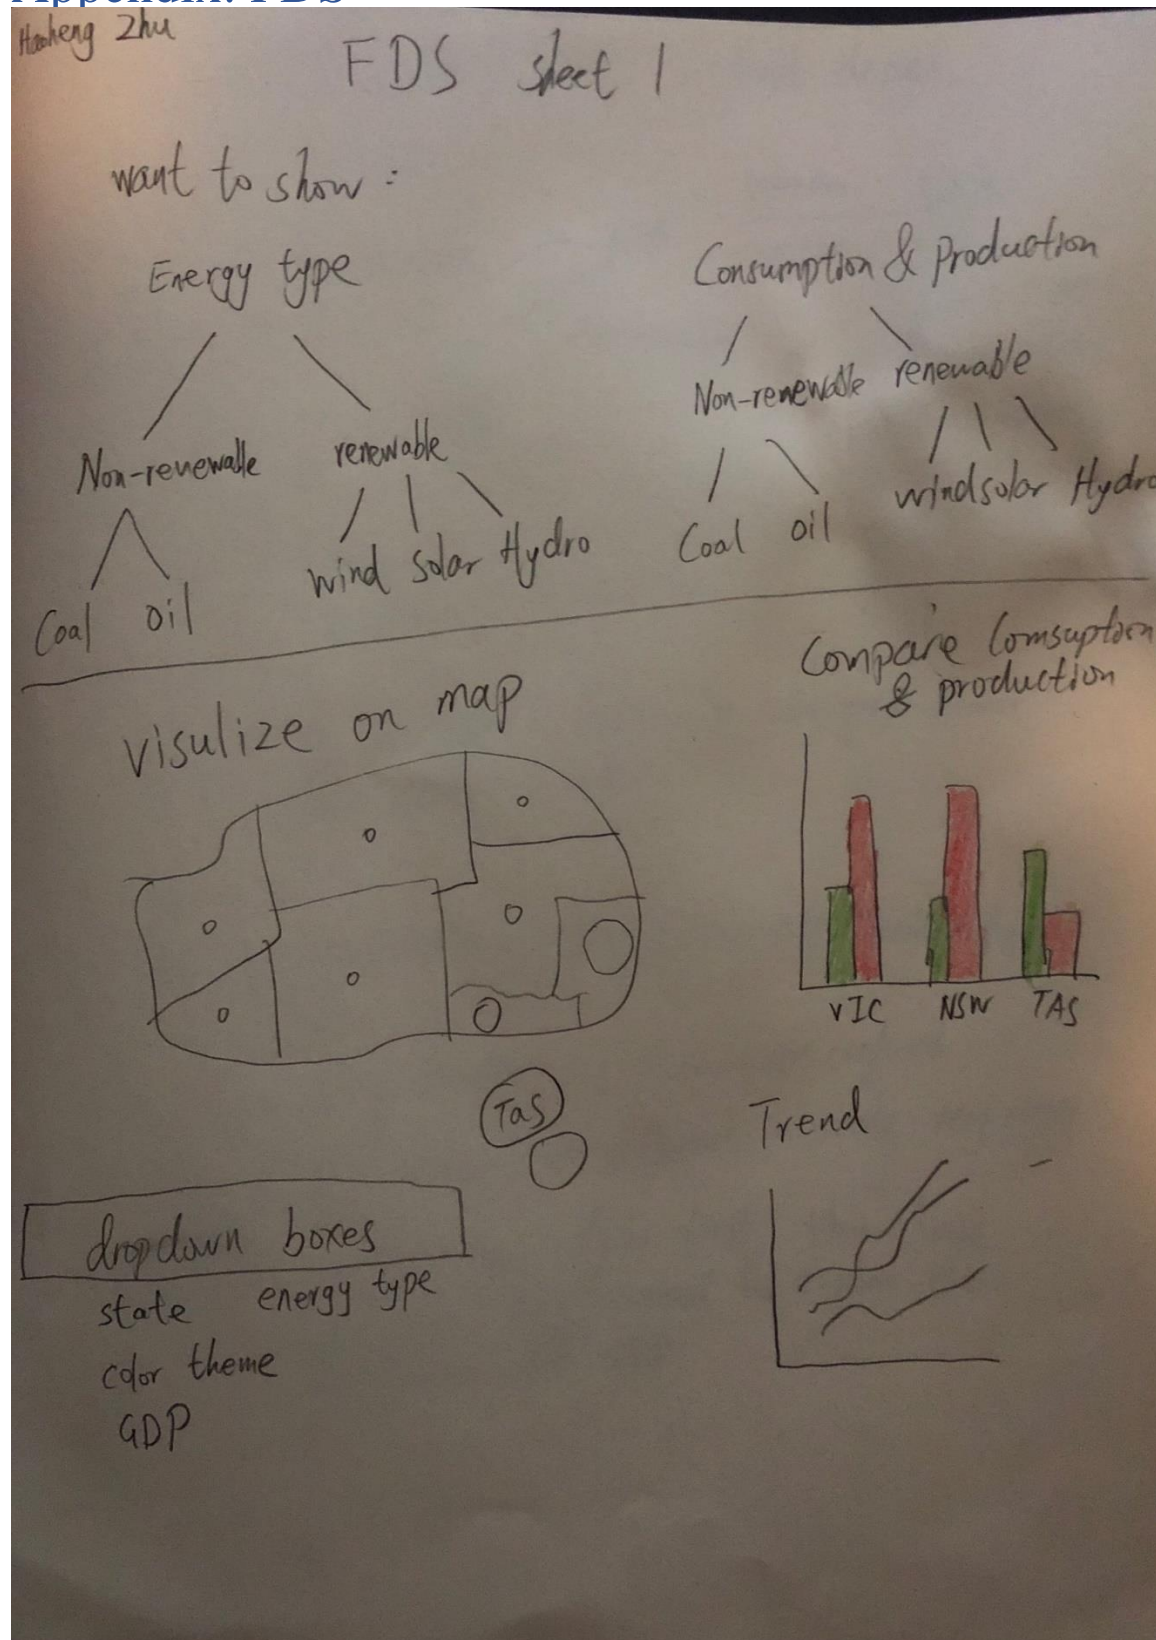 Appendix: FDS
Haoheng Zhu
FDS sheet 1
want to show :
Energy type
Non-renewable renewable
Coal oil wind solar Hydro
Consumption & production
Non-renewable renewable
Coal oil wind solar Hydro
visulize on map
Tas
Compare Comsuption
& production
VIC NSW TAS
Trend
dropdown boxes
state energy type
color theme
GDP